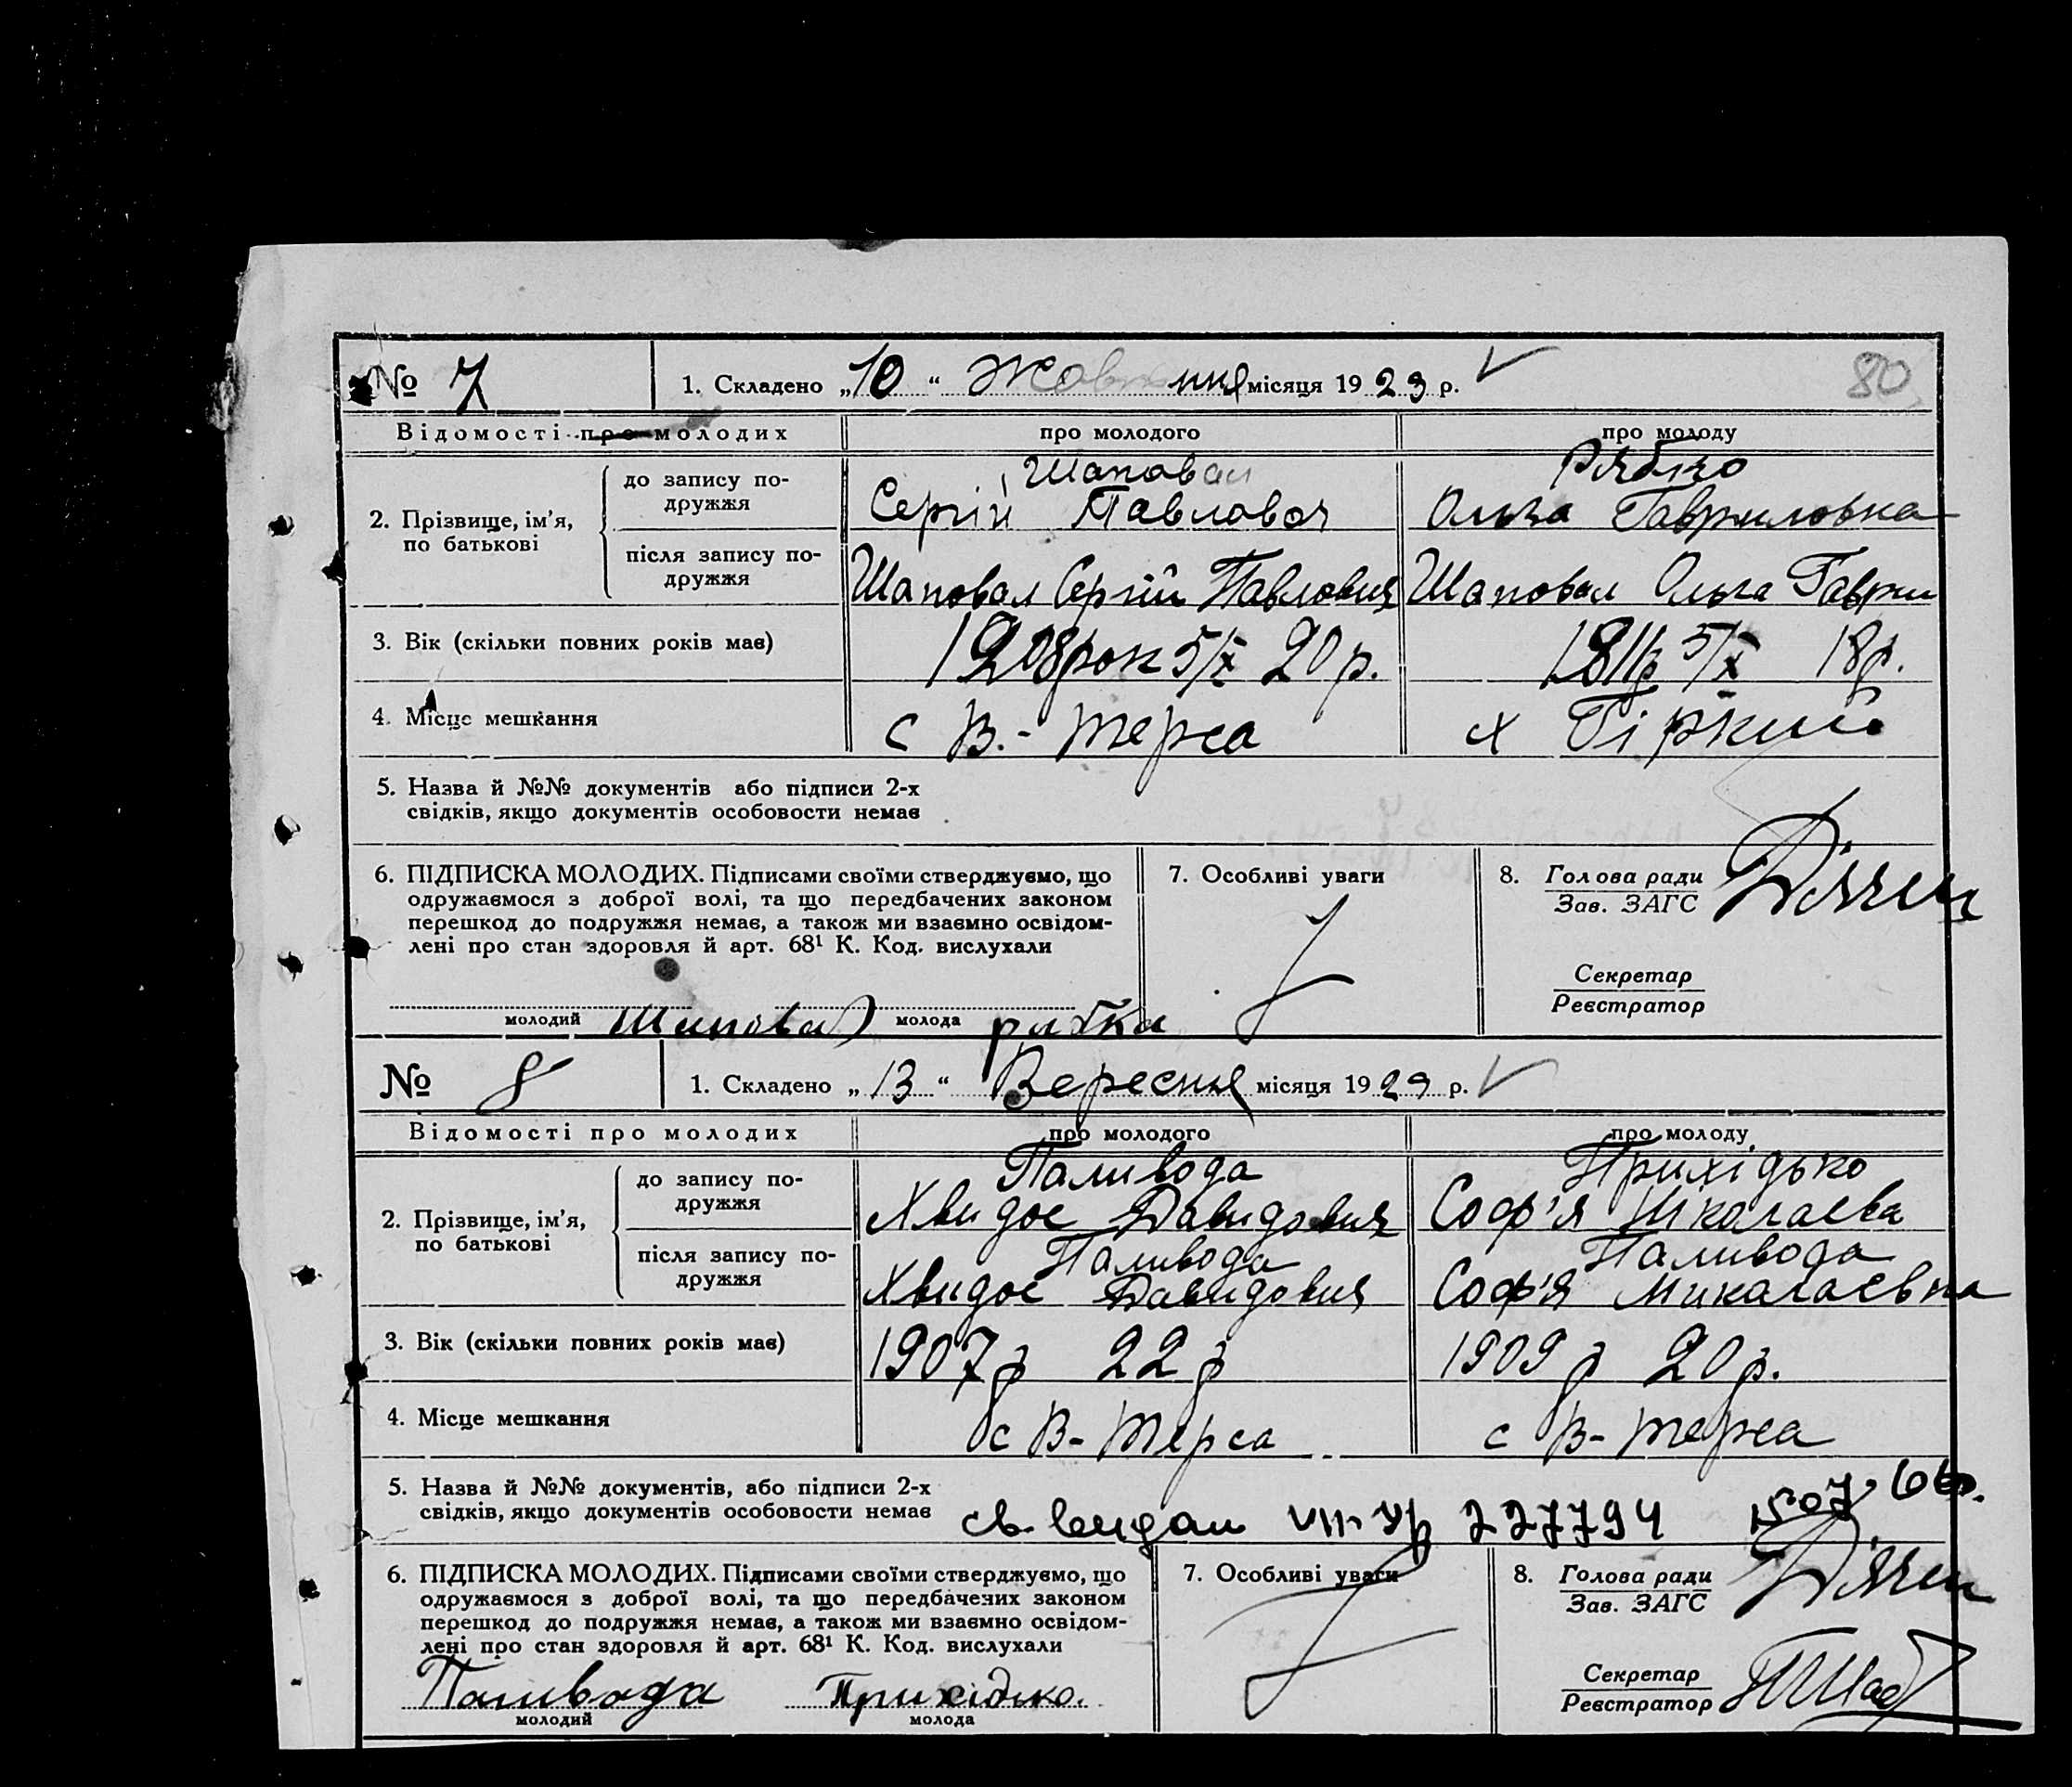 № 7 1. Складено „10“ Жовтня місяця 1929 р. 80
Відомості про молодих про молодого про молоду
Шаповал Рябко
2. Прізвище, ім'я, по батькові до запису подружжя Сергій Павловоч Ольга Гавриловна
після запису подружжя Шаповал Сергій Павлович Шаповал Ольга Гаври
3. Вік (скільки повних років має) 1908 рок 5/X 20 р. 1911 р 5/X 18 р.
4. Місце мешкання с В.-Терса х Гіркий
5. Назва й №№ документів або підписи 2-х
свідків, якщо документів особовости немає
6. ПІДПИСКА МОЛОДИХ. Підписами своїми стверджуємо, що
одружаємося з доброї волі, та що передбачених законом
перешкод до подружжя немає, а також ми взаємно освідом-
лені про стан здоровля й арт. 68¹ К. Код. вислухали
7. Особливі уваги
8. Голова ради
Зав. ЗАГС
Секретар
Реєстратор
молодий Шаповал молода рябка
№ 8 1. Складено „13“ Вересня місяця 1929 р.
Відомості про молодих про молодого про молоду
Паливода Прихідько
2. Прізвище, ім'я, по батькові до запису подружжя Хвидос Давидович Соф'я Міколаєва
Паливода Паливода
після запису подружжя Хвидос Давидович Соф'я Микалаєвна
3. Вік (скільки повних років має) 1907 р 22 р 1909 р 20 р.
4. Місце мешкання с В-Терса с В-Терса
5. Назва й №№ документів, або підписи 2-х
свідків, якщо документів особовости немає св. видан VIII-УР 227794
6. ПІДПИСКА МОЛОДИХ. Підписами своїми стверджуємо, що
одружаємося з доброї волі, та що передбачених законом
перешкод до подружжя немає, а також ми взаємно освідом-
лені про стан здоровля й арт. 68¹ К. Код. вислухали
Паливода Прихідко.
молодий молода
7. Особливі уваги
8. Голова ради
Зав. ЗАГС
Секретар
Реєстратор